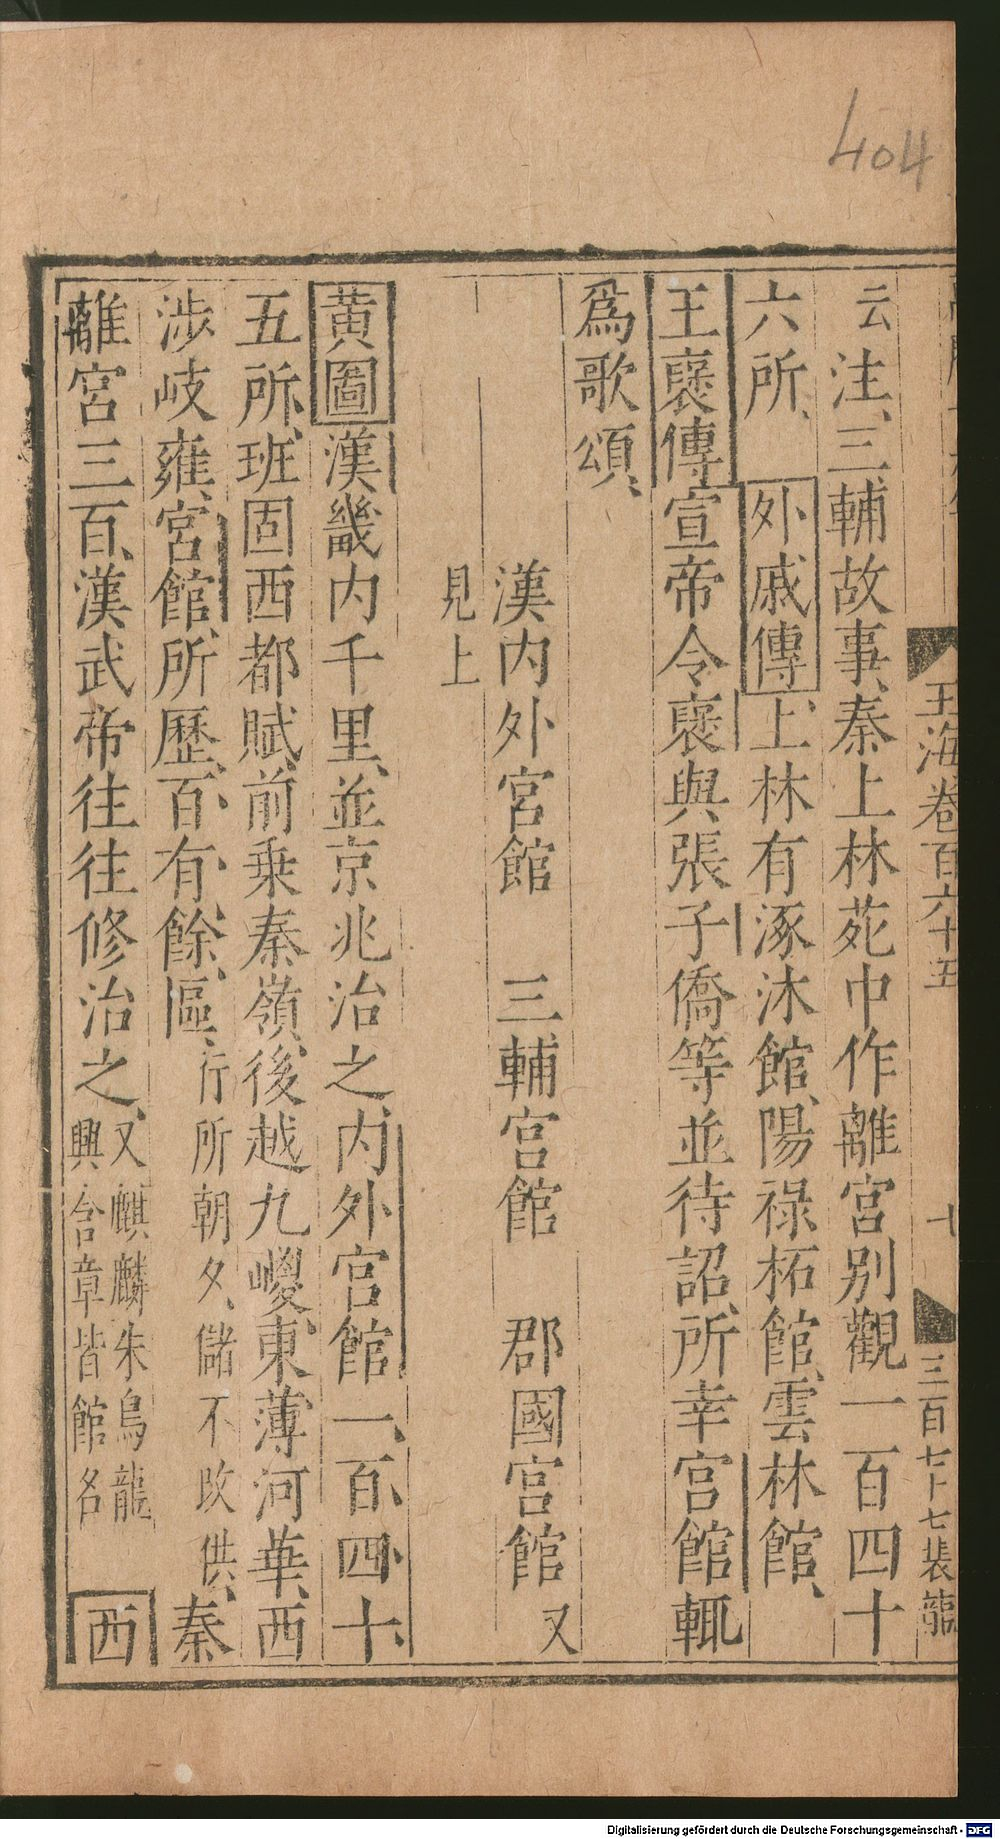 404
玉海卷百六十五
七
三百七十七裴龍
云注、三輔故事、秦上林苑中作離宮别觀一百四十
六所、 外戚傳、上林有涿沐館、陽祿柘館、雲林館、
王襃傳宣帝令襃與張子僑等並待詔、所幸宮館輒
爲歌頌、
漢内外宮館 三輔宮館 郡國宮館 又
見上
黃圖漢畿内千里、並京兆治之、内外宮館一百四十
五所、班固西都賦、前乗秦嶺、後越九嵕、東薄河華、西
涉岐雍、宮館所歷、百有餘區、行所朝夕、儲不改供、秦
離宮三百、漢武帝往往修治之、又麒麟朱鳥龍
興含章皆館名 西
Digitalisierung gefördert durch die Deutsche Forschungsgemeinschaft - DFG